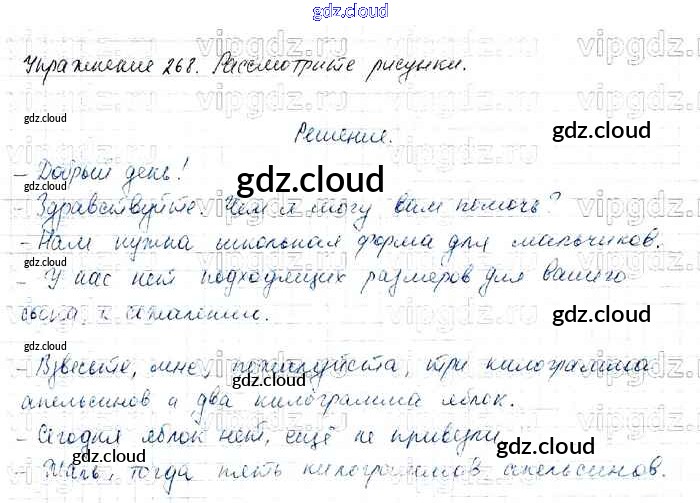 gdz.cloud
Упражнение 268. Рассмотрите рисунки.
Решение.
gdz.cloud
gdz.cloud
- Добрый день!
gdz.cloud
- Здравствуйте. Чем я могу вам помочь?
- Нам нужна школьная форма для мальчиков.
gdz.cloud
- У нас нет подходящих размеров для вашего
сына, к сожалению.
gdz.cloud
gdz.cloud
- Взвесьте, мне, пожалуйста, три килограмма
gdz.cloud
апельсинов и два килограмма яблок.
gdz.cloud
- Сегодня яблок нет, ещё не привезли.
gdz.cloud
- Жаль, тогда пять килограммов апельсинов.
gdz.cloud
gdz.cloud